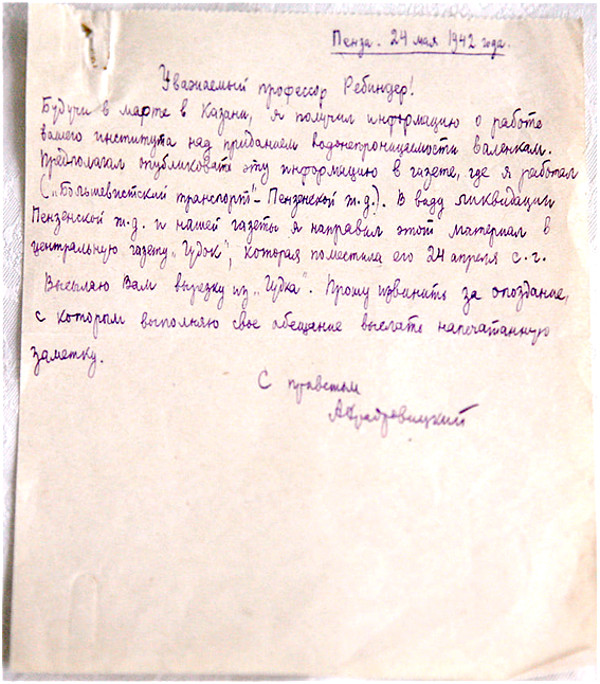 Пенза. 24 мая 1942 года.
Уважаемый профессор Ребиндер!
Будучи в марте в Казани, я получил информацию о работе
вашего института над приданием водонепроницаемости валенкам.
Предполагал опубликовать эту информацию в газете, где я работал
(„Большевистский транспорт" - Пензенской ж.д.). В виду ликвидации
Пензенской ж.д. и нашей газеты я направил этот материал в
центральную газету „Гудок", которая поместила его 24 апреля с.г.
Высылаю Вам вырезку из „Гудка". Прошу извинить за опоздание,
с которым выполняю свое обещание выслать напечатанную
заметку.
С приветом